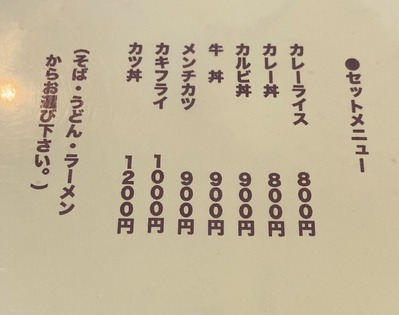 ●セットメニュー
カレーライス 800円
カレー丼 800円
カルビ丼 900円
牛丼 900円
メンチカツ 900円
カキフライ 1000円
カツ丼 1200円
(そば・うどん・ラーメン
からお選び下さい。)